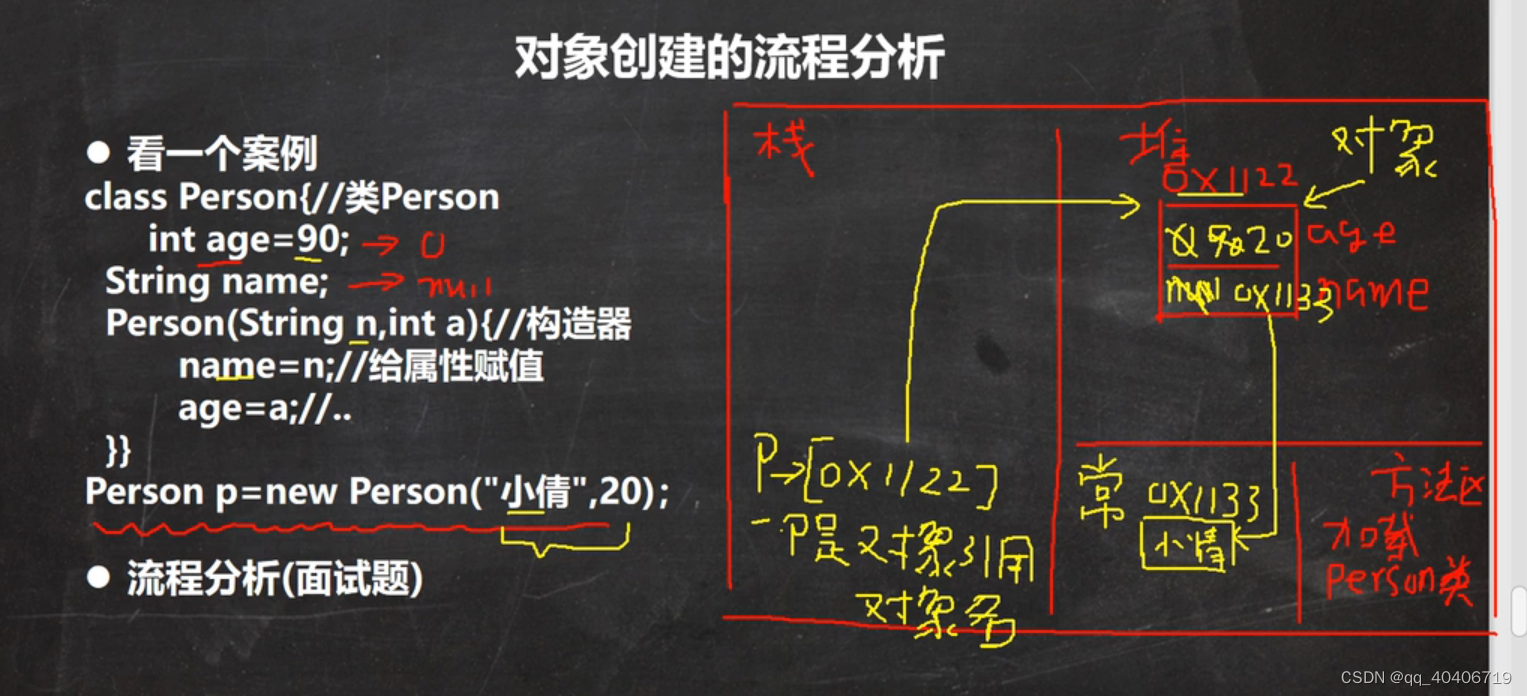 对象创建的流程分析
● 看一个案例
class Person{//类Person
int age=90; → 0
String name; → null
Person(String n,int a){//构造器
name=n;//给属性赋值
age=a;//..
}}
Person p=new Person("小倩",20);
● 流程分析(面试题)
栈
P→[0X1122]
-P是对象引用
对象名
堆
对象
0X1122
0 90 20 age
null 0X1133 name
常 0X1133
小倩
方法区
加载
Person类
CSDN @qq_40406719